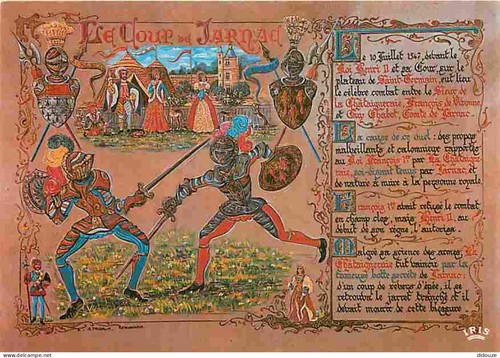 Le Coup de Jarnac
Le 10 Juillet 1547, devant le
Roi Henri II et sa Cour, sur le
plateau de Saint Germain, eut lieu
le célèbre combat entre le Sieur de
la Châtaigneraie, François de Vivonne
et Guy Chabot, Comte de Jarnac.
La cause de ce duel : des propos
malveillants et calomnieux rapportés
au Roi François 1er par La Châtaigne-
raie, soi-disant tenus par Jarnac, et
de nature à nuire à la personne royale
François 1er avait refusé le combat
en champ clos, mais Henri II, au
début de son règne, l'autorisa.
Malgré sa science des armes, La
Châtaigneraie fut vaincu par la
fameuse botte secrète de Jarnac :
d'un coup de revers d'épée, il se
retrouva le jarret tranché et il
devait mourir de cette blessure
IRIS